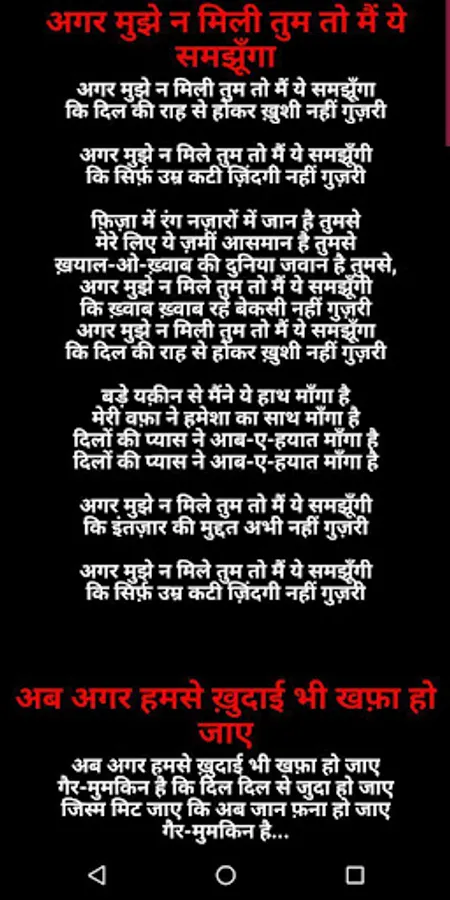 अगर मुझे न मिली तुम तो मैं ये
समझूँगा
अगर मुझे न मिली तुम तो मैं ये समझूँगा
कि दिल की राह से होकर ख़ुशी नहीं गुज़री
अगर मुझे न मिले तुम तो मैं ये समझूँगी
कि सिर्फ़ उम्र कटी ज़िंदगी नहीं गुज़री
फ़िज़ा में रंग नज़ारों में जान है तुमसे
मेरे लिए ये ज़मीं आसमान है तुमसे
ख़याल-ओ-ख़्वाब की दुनिया जवान है तुमसे,
अगर मुझे न मिले तुम तो मैं ये समझूँगी
कि ख़्वाब ख़्वाब रहे बेकसी नहीं गुज़री
अगर मुझे न मिली तुम तो मैं ये समझूँगा
कि दिल की राह से होकर ख़ुशी नहीं गुज़री
बड़े यक़ीन से मैंने ये हाथ माँगा है
मेरी वफ़ा ने हमेशा का साथ माँगा है
दिलों की प्यास ने आब-ए-हयात माँगा है
दिलों की प्यास ने आब-ए-हयात माँगा है
अगर मुझे न मिले तुम तो मैं ये समझूँगी
कि इंतज़ार की मुद्दत अभी नहीं गुज़री
अगर मुझे न मिले तुम तो मैं ये समझूँगी
कि सिर्फ़ उम्र कटी ज़िंदगी नहीं गुज़री
अब अगर हमसे ख़ुदाई भी खफ़ा हो
जाए
अब अगर हमसे ख़ुदाई भी खफ़ा हो जाए
गैर-मुमकिन है कि दिल दिल से जुदा हो जाए
जिस्म मिट जाए कि अब जान फ़ना हो जाए
गैर-मुमकिन है...